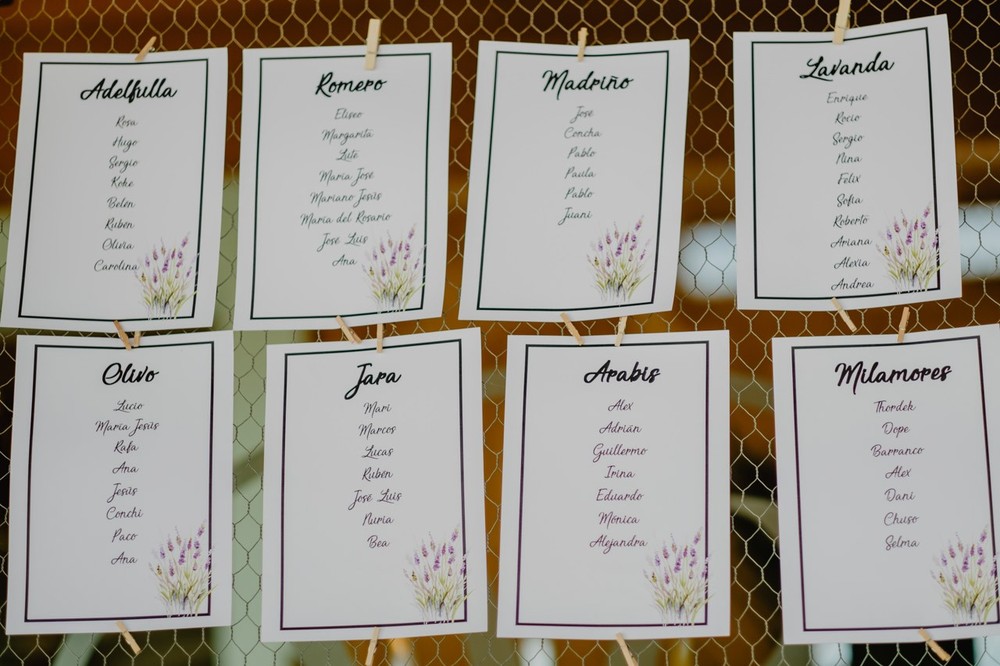 Adelfulla
Rosa
Hugo
Sergio
Koke
Belén
Rubén
Olivia
Carolina
Romero
Eliseo
Margarita
Lute
María José
Mariano Jesús
María del Rosario
José Luis
Ana
Madriño
José
Concha
Pablo
Paula
Pablo
Juani
Lavanda
Enrique
Rocío
Sergio
Nina
Felix
Sofía
Roberto
Ariana
Alexia
Andrea
Olivo
Lucio
María Jesús
Rafa
Ana
Jesús
Conchi
Paco
Ana
Jara
Mari
Marcos
Lucas
Rubén
José Luis
Nuria
Bea
Arabis
Alex
Adrián
Guillermo
Irina
Eduardo
Mónica
Alejandra
Milamores
Thordek
Dope
Barranco
Alex
Dani
Chuso
Selma